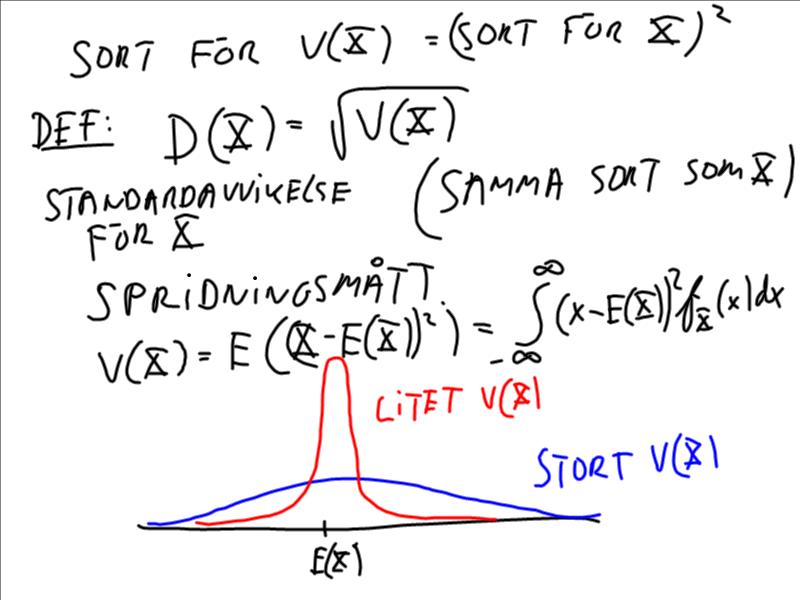 SORT FÖR V(X) = (SORT FÖR X)²
DEF: D(X) = √V(X)
STANDARDAVVIKELSE (SAMMA SORT SOM X)
FÖR X
SPRIDNINGSMÅTT
V(X) = E((X-E(X))²) = ∫_{-∞}^{∞} (x-E(X))² f_X(x)dx
LITET V(X)
STORT V(X)
E(X)